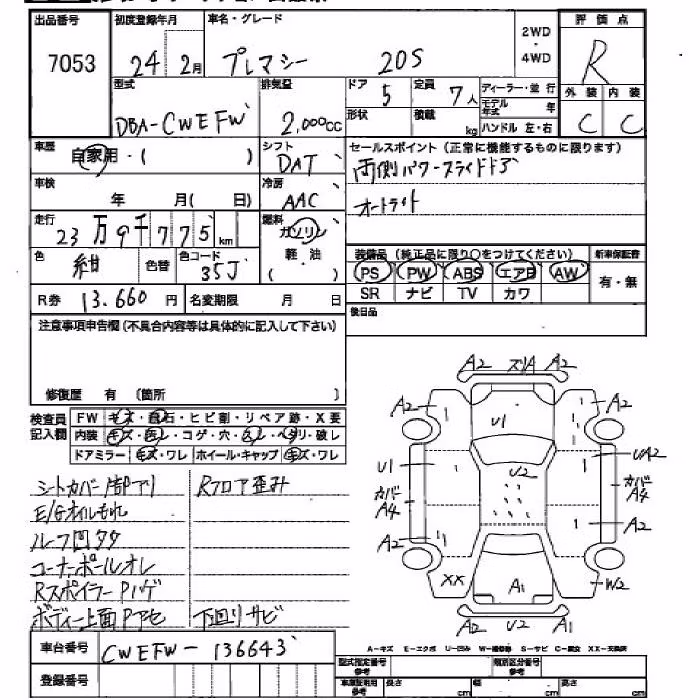 出品番号 初度登録年月 車名・グレード 評価点
7053 24年2月 プレマシー 20S 2WD・4WD R
型式 排気量 ドア 定員 ディーラー・並行 外装 内装
DBA-CWEFW 2,000cc 5 7人 モデル年式 年 C C
形状 積載 kg ハンドル 左・右
車歴 自家用・( ) シフト DAT セールスポイント (正常に機能するものに限ります)
両側パワースライドドア
車検 年 月( 日) 冷房 AAC オートライト
走行 23万9千775km 燃料 ガソリン・軽油 ( )
装備品 (純正品に限り○をつけてください) 新車保証書
色 紺 色替 色コード 35J PS PW ABS エアB AW 有・無
SR ナビ TV カワ
R券 13.660円 名変期限 月 日 後日品
注意事項申告欄 (不具合内容等は具体的に記入して下さい)
修復歴 有 〔箇所 〕
検査員記入欄 FW キズ・飛石・ヒビ割・リペア跡・X要
内装 キズ・汚レ・コゲ・穴・スレ・ヘタリ・破レ
ドアミラー キズ・ワレ ホイール・キャップ キズ・ワレ
シートカバー Rフロア歪み
E/Gオイルもれ
ルーフ凹タタ
コーナーポールオレ
RスポイラーPハゲ
ボディー上面Pアセ 下回りサビ
A2 ズリA A2
A2 U1 A2
U1 U2 UA2
カバーA4 カバーA4
A2 A2
XX A1 W2
A2 U2 A1
車台番号 CWEFW-136643
A-キズ E-エクボ U-凹み W-補修跡 S-サビ C-腐食 XX-交換済
登録番号 型式指定番号 参考 類別区分番号 参考
車庫証明用 参考 長さ cm 幅 cm 高さ cm